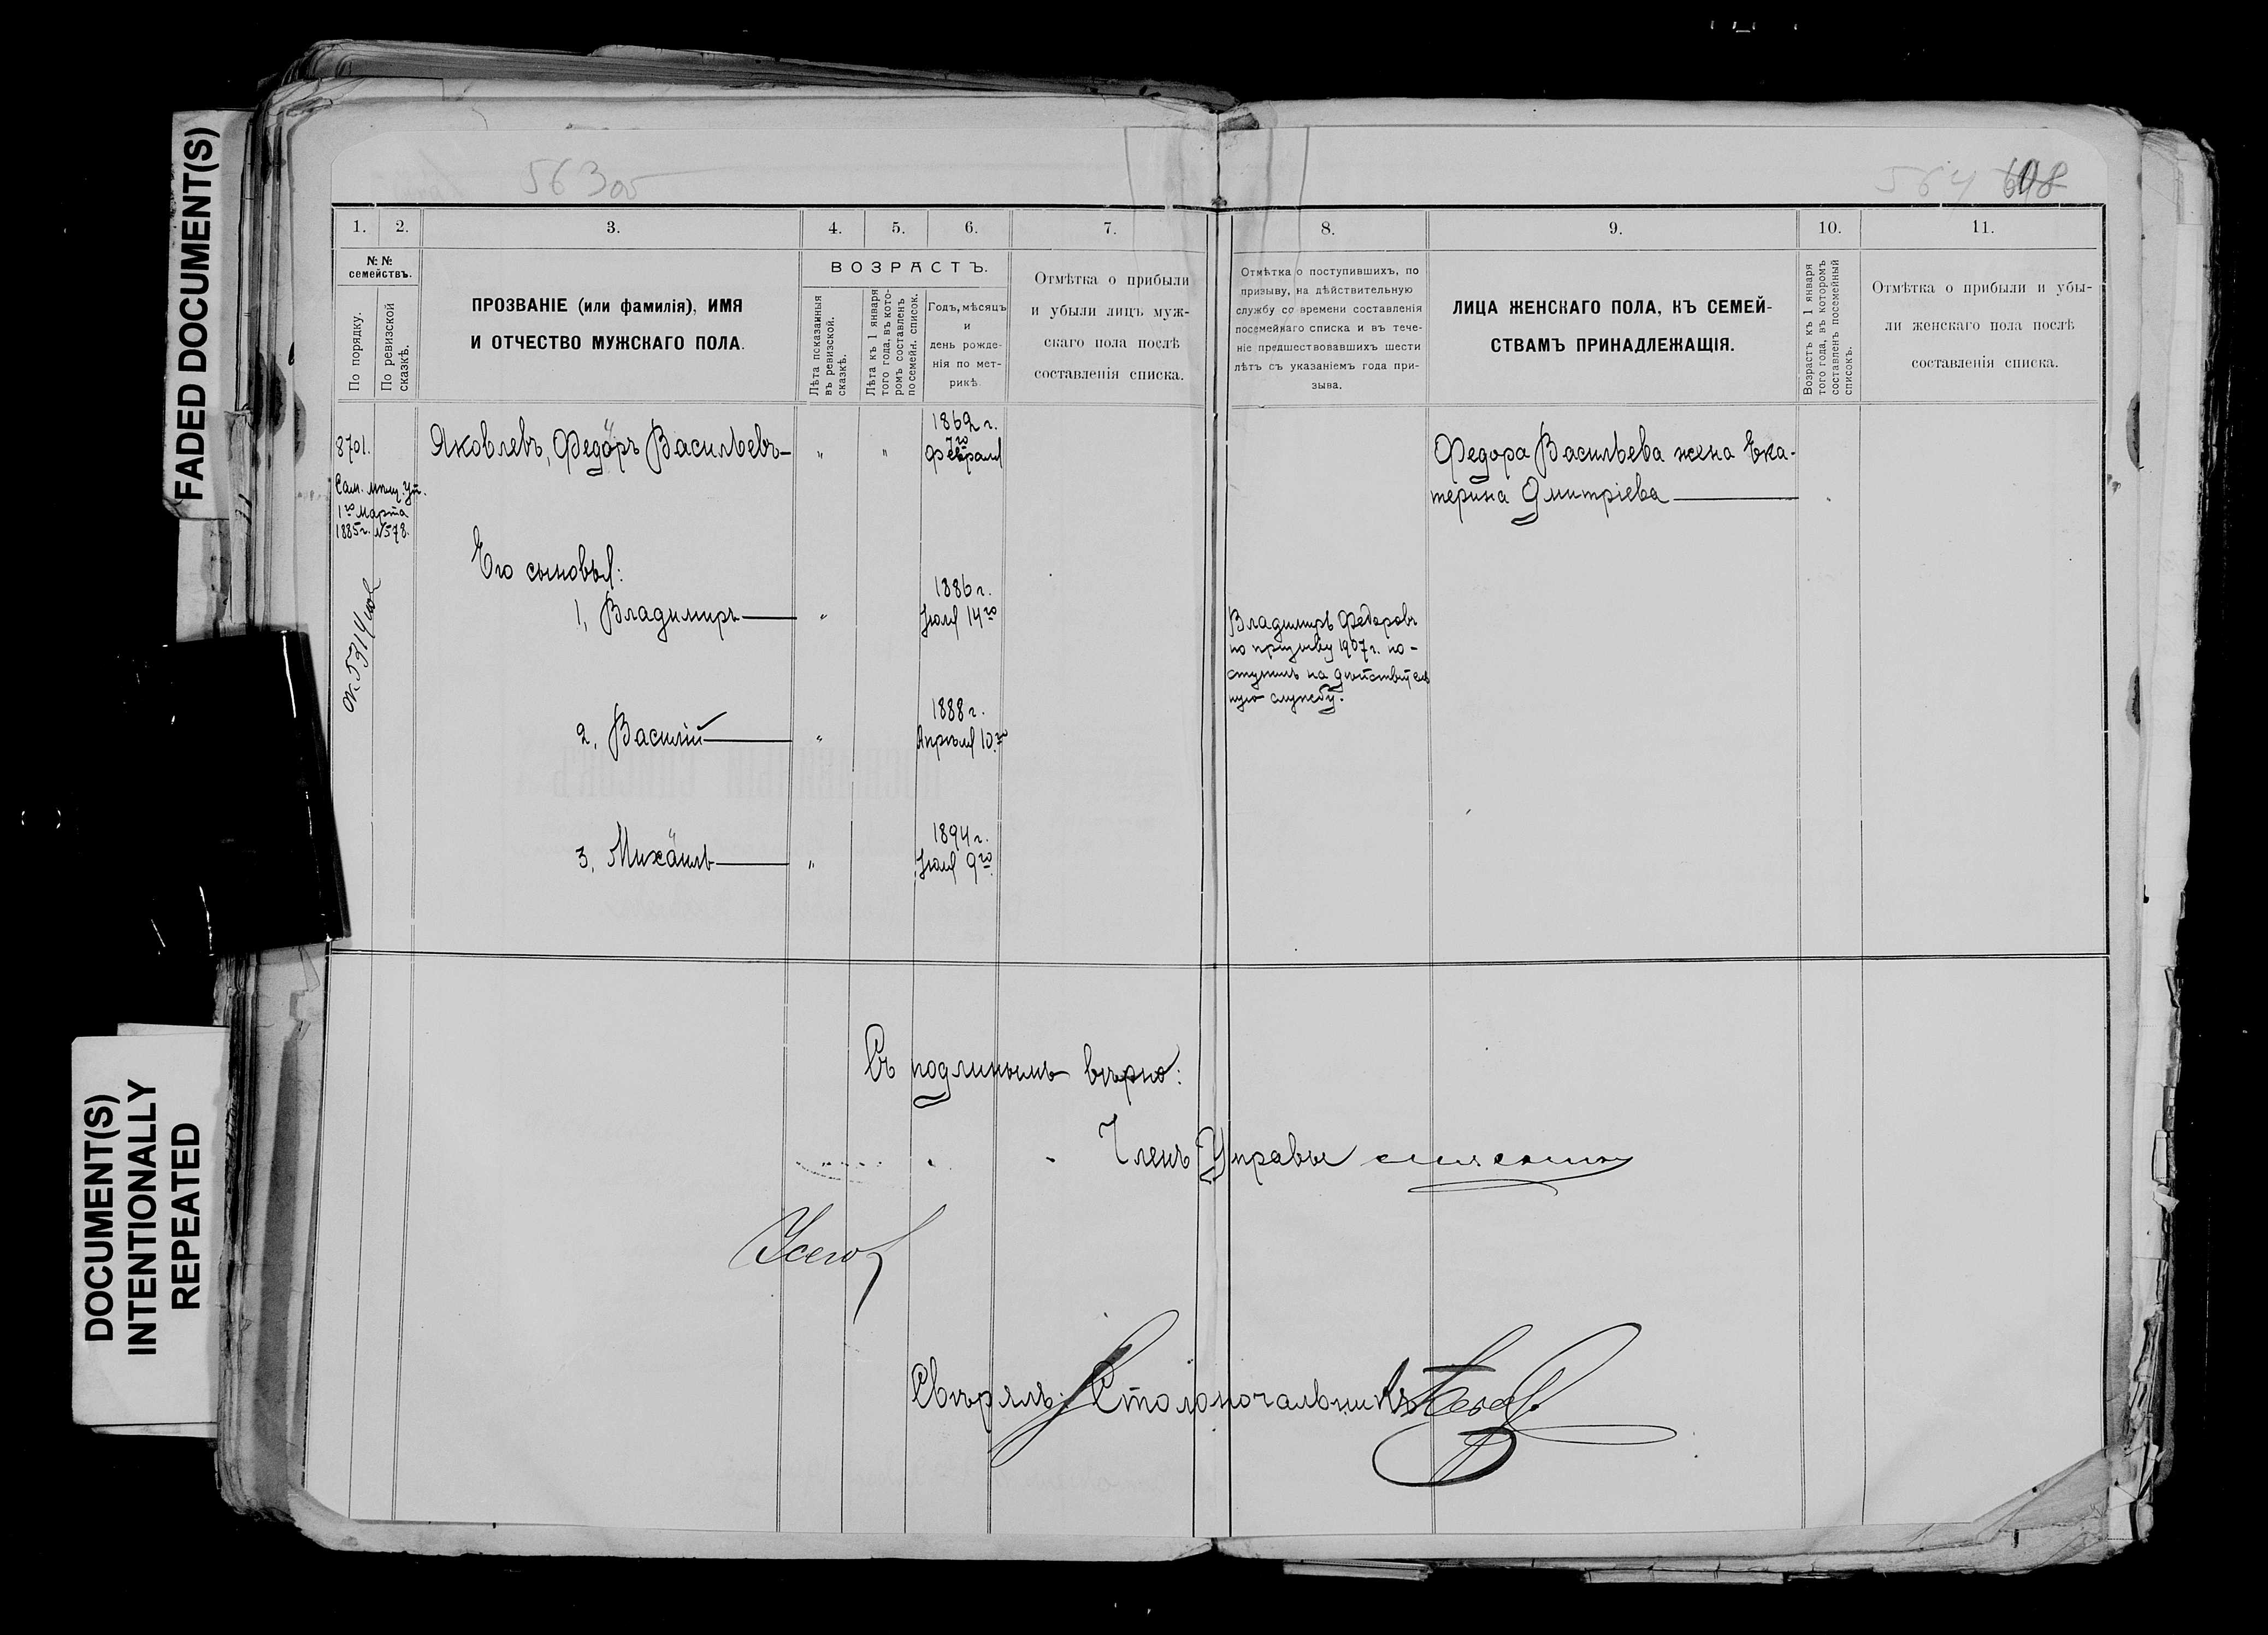 FADED DOCUMENT(S)
DOCUMENT(S)
INTENTIONALLY
REPEATED
563об
564 608
1. 2. 3. 4. 5. 6. 7. 8. 9. 10. 11.
№ №
семействъ.
По порядку.
По ревизской
сказкѣ.
ПРОЗВАНІЕ (или фамилія), ИМЯ
И ОТЧЕСТВО МУЖСКАГО ПОЛА.
ВОЗРАСТЪ.
Лѣта показанныя
въ ревизской.
сказкѣ.
Лѣта къ 1 января
того года, въ кото-
ромъ составленъ
посемейн. список.
Годъ, мѣсяцъ
и
день рожде-
нія по мет-
рикѣ.
Отмѣтка о прибыли
и убыли лицъ муж-
скаго пола послѣ
составленія списка.
Отмѣтка о поступившихъ, по
призыву, на дѣйствительную
службу со времени составленія
посемейнаго списка и въ тече-
ніе предшествовавшихъ шести
лѣтъ съ указаніемъ года при-
зыва.
ЛИЦА ЖЕНСКАГО ПОЛА, КЪ СЕМЕЙ-
СТВАМЪ ПРИНАДЛЕЖАЩІЯ.
Возрастъ къ 1 января
того года, въ которомъ
составленъ посемейный
списокъ.
Отмѣтка о прибыли и убы-
ли женскаго пола послѣ
составленія списка.
8701.
Сам. мѣщ. Уп.
1го Марта
1885г. №578.
Яковлевъ, Федоръ Васильевъ „ „
1862 г.
7го
Февраля
Федора Васильева жена Ека-
терина Дмитріева
Его сыновья:
1, Владимиръ „
1886 г.
Іюля 14го
Владимиръ Федоровъ
по призыву 1907 г. по-
ступилъ на дѣйствитель
ную службу.
2, Василій „
1888 г.
Апрѣля 10го
3, Михаилъ „
1894 г.
Іюля 9го
Съ подлинымъ вѣрно:
Членъ Управы
Свѣрялъ: Столоначальникъ